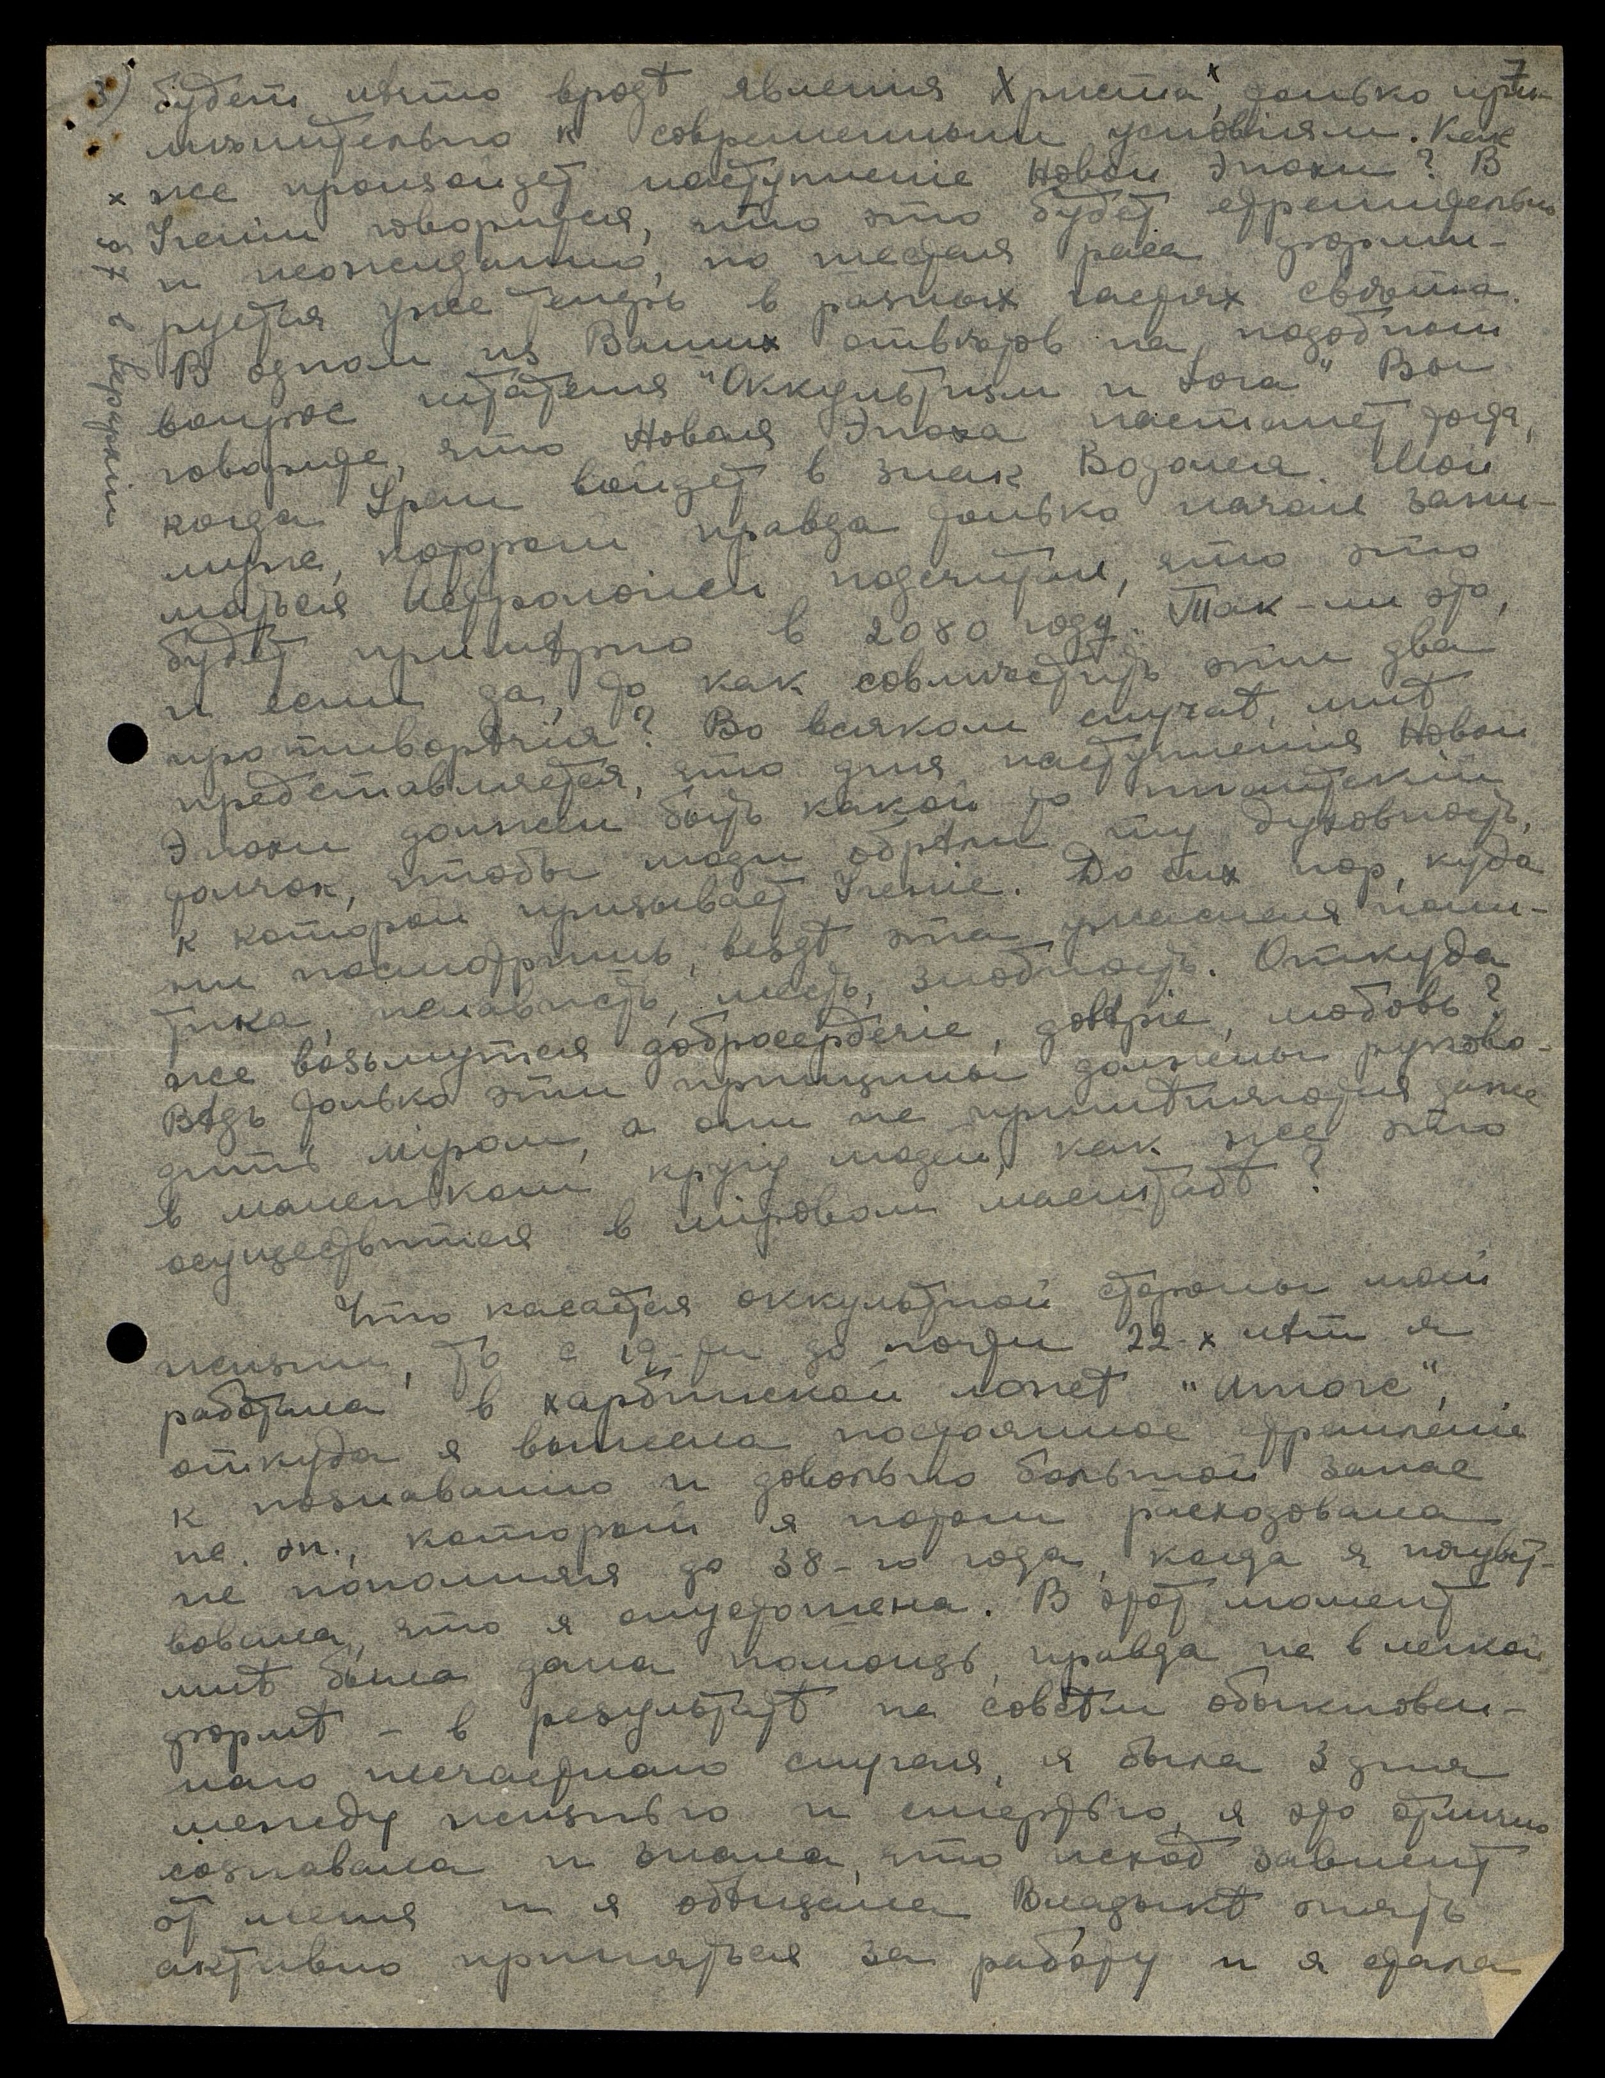 3) будет нѣчто вродѣ явленія Христа ˣ, только при- 7
мѣнительно к современным условіям. Как
же произойдет наступленіе Новой Эпохи? В
Ученіи говорится, что это будет стремительно
и неожиданно, но шестая раса форми-
руется уже теперь в разных частях свѣта.
В одном из Ваших отвѣтов на подобный
вопрос читателя "Оккультизм и Іога" Вы
говорите, что Новая Эпоха настанет тогда,
когда Уран войдет в знак Водолея. Мой
муж, который правда только начал зани-
маться Астрологіей подсчитал, что это
будет примѣрно в 2080 году. Так-ли это,
и если да, то как совмѣстить эти два
противорѣчія? Во всяком случаѣ, мнѣ
представляется, что для наступленія Новой
Эпохи должен быть какой то гигантскій
толчок, чтобы люди обрѣли ту духовность,
к которой призывает Ученіе. До сих пор, куда
ни посмотришь, вездѣ эта ужасная поли-
тика, ненависть, месть, злобность. Откуда
же возьмутся добросердечіе, довѣріе, любовь?
Вѣдь только эти принципы должны руково-
дить міром, а они не примѣняются даже
в маленьком кругу людей, как же это
осуществится в міровом масштабѣ?
Что касается оккультной стороны моей
жизни, то с 19-ти до почти 22-х лѣт я
работала в харбинской ложѣ "Аторс",
откуда я вынесла постоянное стремленіе
к познаванію и довольно большой запас
пс. эн., который я потом расходовала
не пополняя до 38-го года, когда я почувст-
вовала, что я опустошена. В этот момент
мнѣ была дана помощь, правда не в легкой
формѣ - в результатѣ не совсѣм обыкновен-
наго несчастнаго случая, я была 3 дня
между жизнью и смертью, я это отлично
сознавала и знала, что исход зависит
от меня и я обѣщала Владыкѣ опять
активно приняться за работу и я стала
х